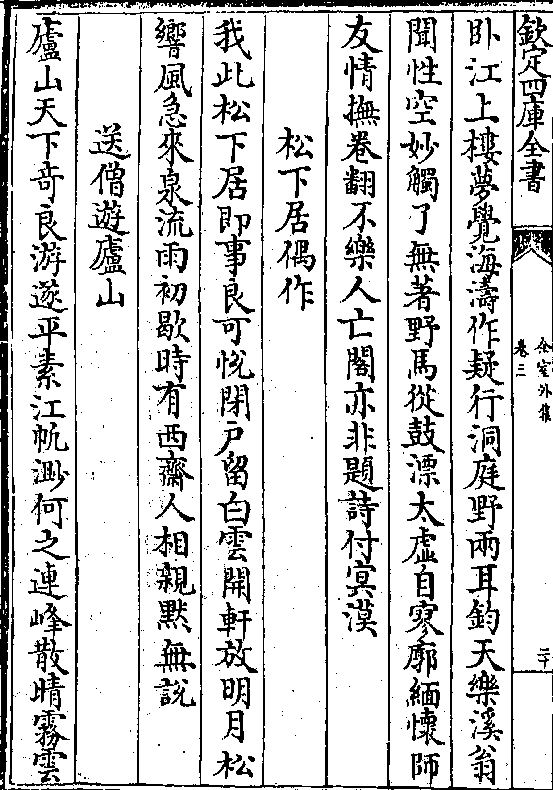 欽定四庫全書
全室外集
卷三
二十
卧江上樓夢覺海濤作疑行洞庭野兩耳鈞天樂溪翁
聞性空妙觸了無著野馬從鼓漂太虛自寥廓緬懷師
友情撫卷翻不樂人亡閣亦非題詩付㝠漠
松下居偶作
我此松下居即事良可悅閉户留白雲開軒放明月松
響風急來泉流雨初歇時有西齋人相親默無說
送僧遊廬山
廬山天下奇良游遂平素江帆渺何之連峰散晴霧雲